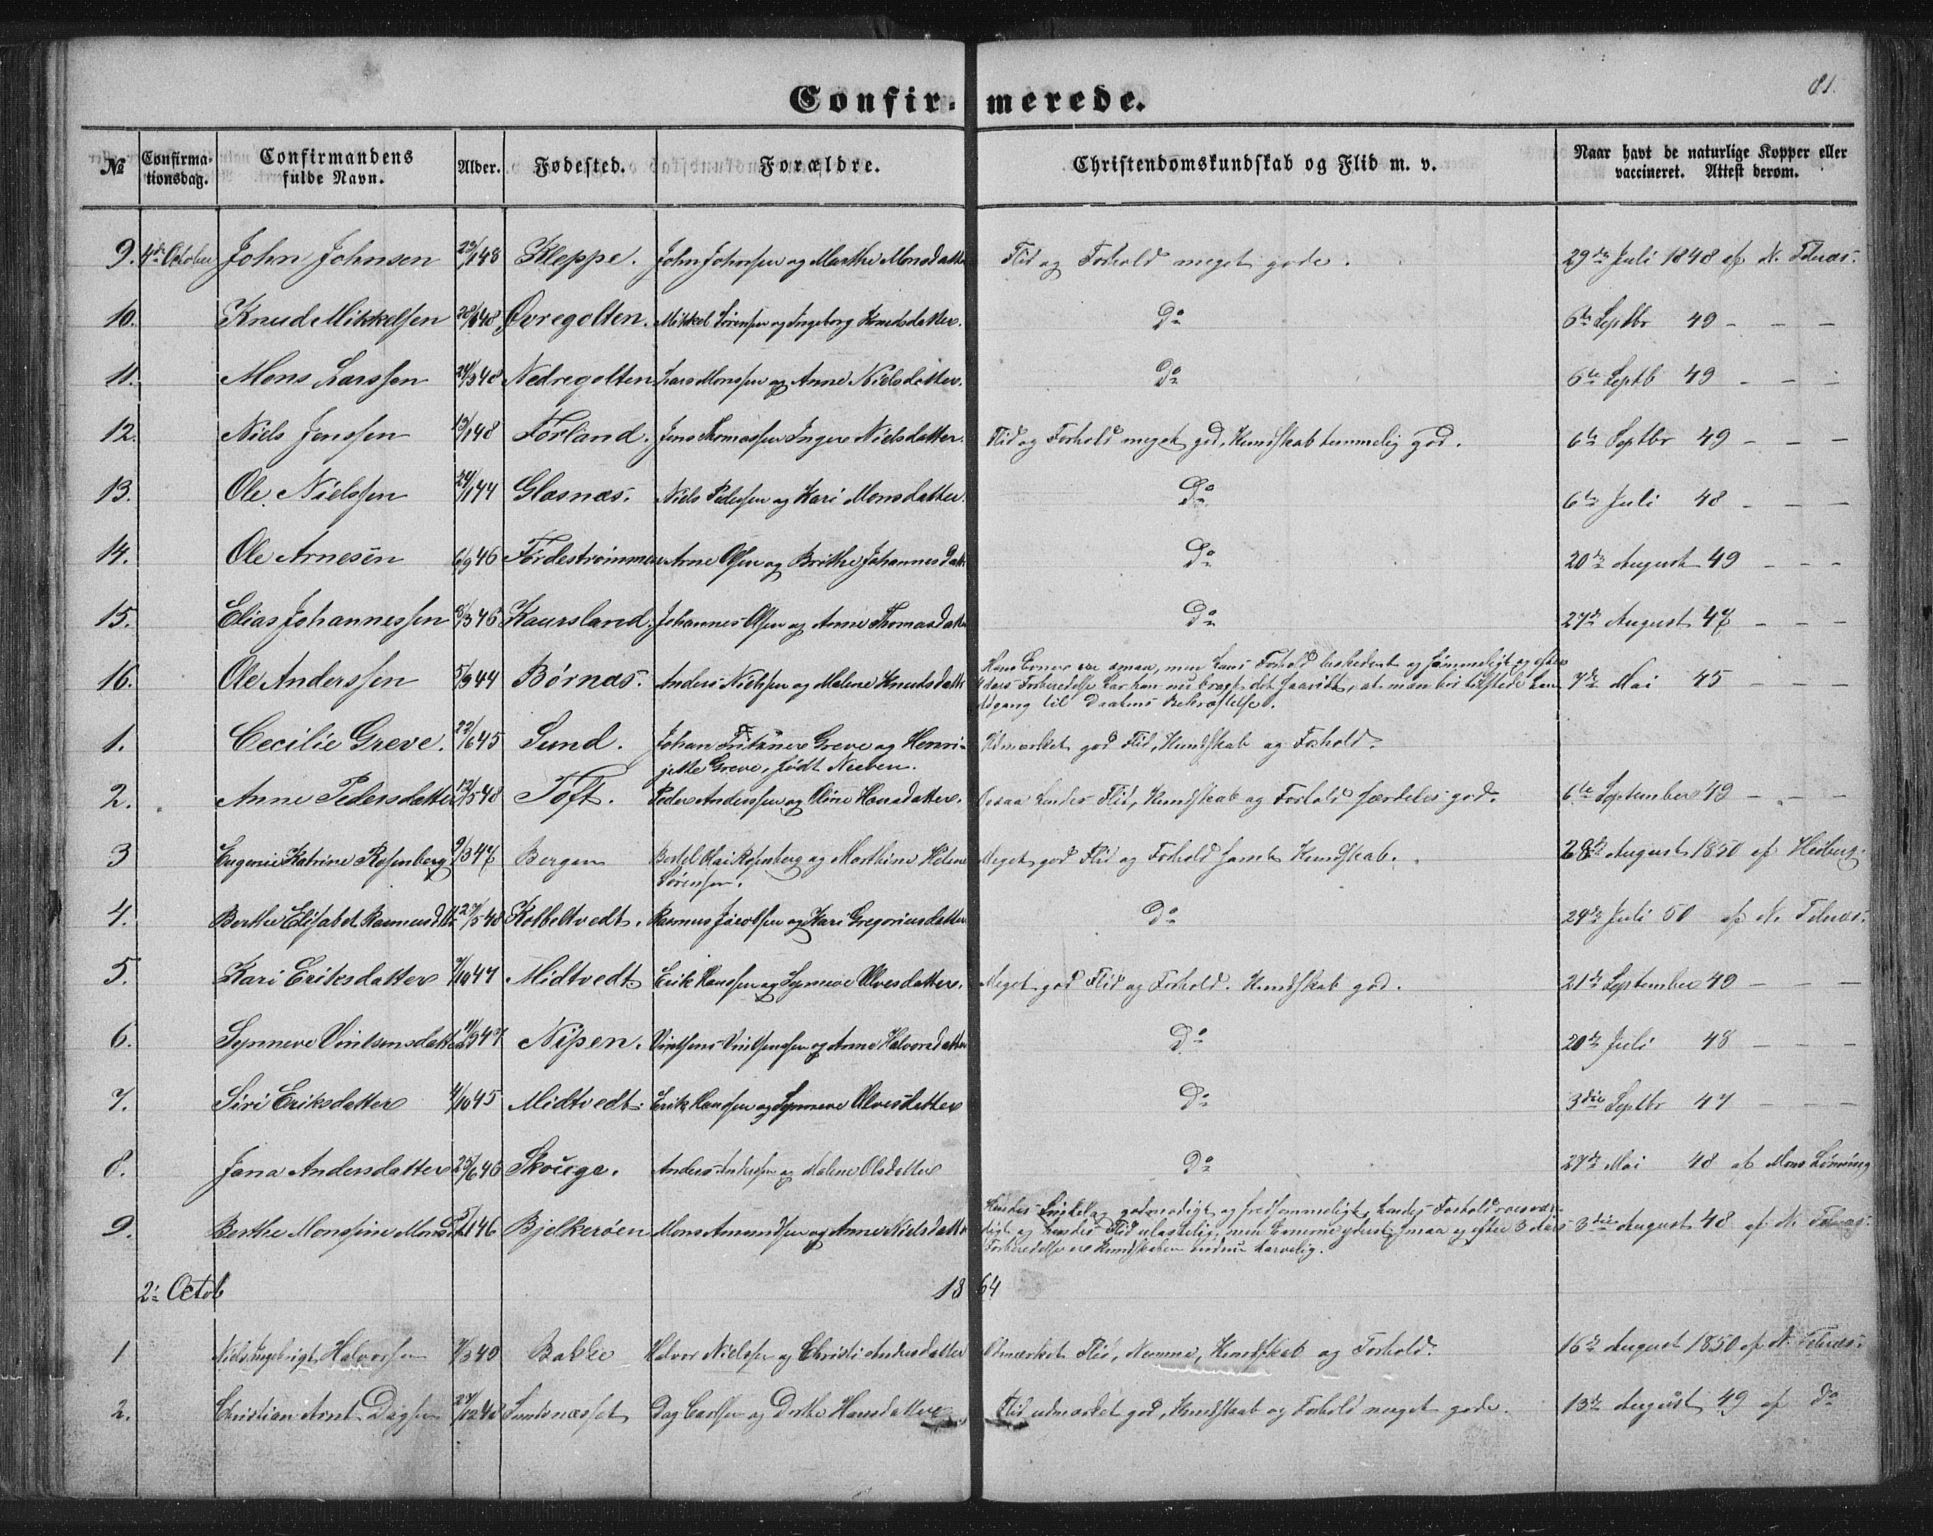 81.
Confir- merede.
№ Confirma-tionsdag. Confirmandens fulde Navn. Alder. Fødested. Forældre. Christendomskundskab og Flid m. v. Naar havt de naturlige Kopper eller vaccineret. Attest derom.
9. 4de October John Johnsen 48 Kleppe. John Johnsen og Marthe Monsdatter Flid og Forhold meget gode. 29de Juli 1848 af N. Telnæs.
10. Knud Mikkelsen 48 Øvregolten. Mikkel Sørensen og Ingeborg Knudsdatter. Do 6te Septbr 49 - - -
11. Mons Larssen 48 Nedregolten Lars Monssen og Anne Nielsdatter. Do 6te Septb 49 - - -
12. Niels Jenssen 13/1 48 Førland. Jens Thomassen Inger Nielsdatter. Flid og Forhold meget god, Kundskab temmelig god. 6te Septbr 49 - - -
13. Ole Nielssen 24/1 44 Glesnæs. Niels Pedersen og Kari Monsdatter. Do 6te Juli 48 - - -
14. Ole Arnesen 6/9 46 Førdestrømmen Arne Olsen og Brithe Johannesdatt Do 20de August 49 - - -
15. Elias Johannessen 46 Kausland. Johannes Olsen og Anne Thomasdatter Do 27de August 47 - - -
16. Ole Anderssen 44 Børnæs. Anders Nielsen og Malene Knudsdatter Hans Evner ere smaa, men hans Forhold beskedent og sømmeligt og efter
Aars Forberedelse har han nu bragt det saavidt, at man bør tilstede ham 7de Mai 45 - - -
Adgang til Daabens Bekræftelse.
1. Cecilie Greve. 22/6 45 Sund. Johan Fritzner Greve og Henri- Udmærket god Flid, Kundskab og Forhold.
jette Greve, født
2. Anne Pedersdatter 48 Toft. Peder Anderssen og Oline Hansdatter. Ogsaa hendes Flid, Kundskab og Forhold særdeles god. 6te September 49 - - -
3 Eugenie Katrine Rosenberg 9/3 47 Bergen Bertel Kai Rosenberg og Marthine Helene Meget god Flid og Forhold samt Kundskab. 28de August 1850 af Heiberg.
Sørensen.
4. Berthe Elisabet Rasmusdtt 48 Kolbeltvedt. Rasmus Jacobsen og Kari Gregoriusdatter Do 24de Juli 50 af N. Telnæs.
5. Kari Eriksdatter 47 Midtvedt. Erik Hanssen og Synneve Olvesdatter. Meget god Flid og Forhold. Kundskab god. 21de September 49 - - -
6. Synneve Vintsensdatter 47 Nipen. Vintsens Vintsensen og Anne Halvorsdatter Do 20de Juli 48 - - -
7. Siri Eriksdatter 4/10 45 Midtvedt. Erik Hanssen og Synneve Olvesdatter Do 3die Septbr 47 - - -
8. Jana Andersdatter 46 Skouge. Anders Andersen og Malene Olsdatter Do 27de Mai 48 af Mons Lønning
9. Berthe Monssine Mons 46 Bjelkerøen Mons Amundsen og Anne Nielsdatter Hendes godmodigt og fredsommeligt, hendes Forhold
og hendes Flid ulastelig, men Evnerne yderst smaa og efter 3 Aars 3die August 48 af N. Telnæs.
Forberedelse ere Kundskaben endnu tarvelig.
2: Octob 1864
1 Niels Ingebrigt Halvorsen Bakke Halvor Nielsen og Christi Andersdatter Udmærket Flid, Nemme, Kundskab og Forhold. 16de August 1850 af N. Telnæs.
2. Christian Arnt Dagsen Dag Carlsen og Dorthe Hansdatter Flid udmærket god, Kundskab og Forhold meget gode. 13de August 49 af Do